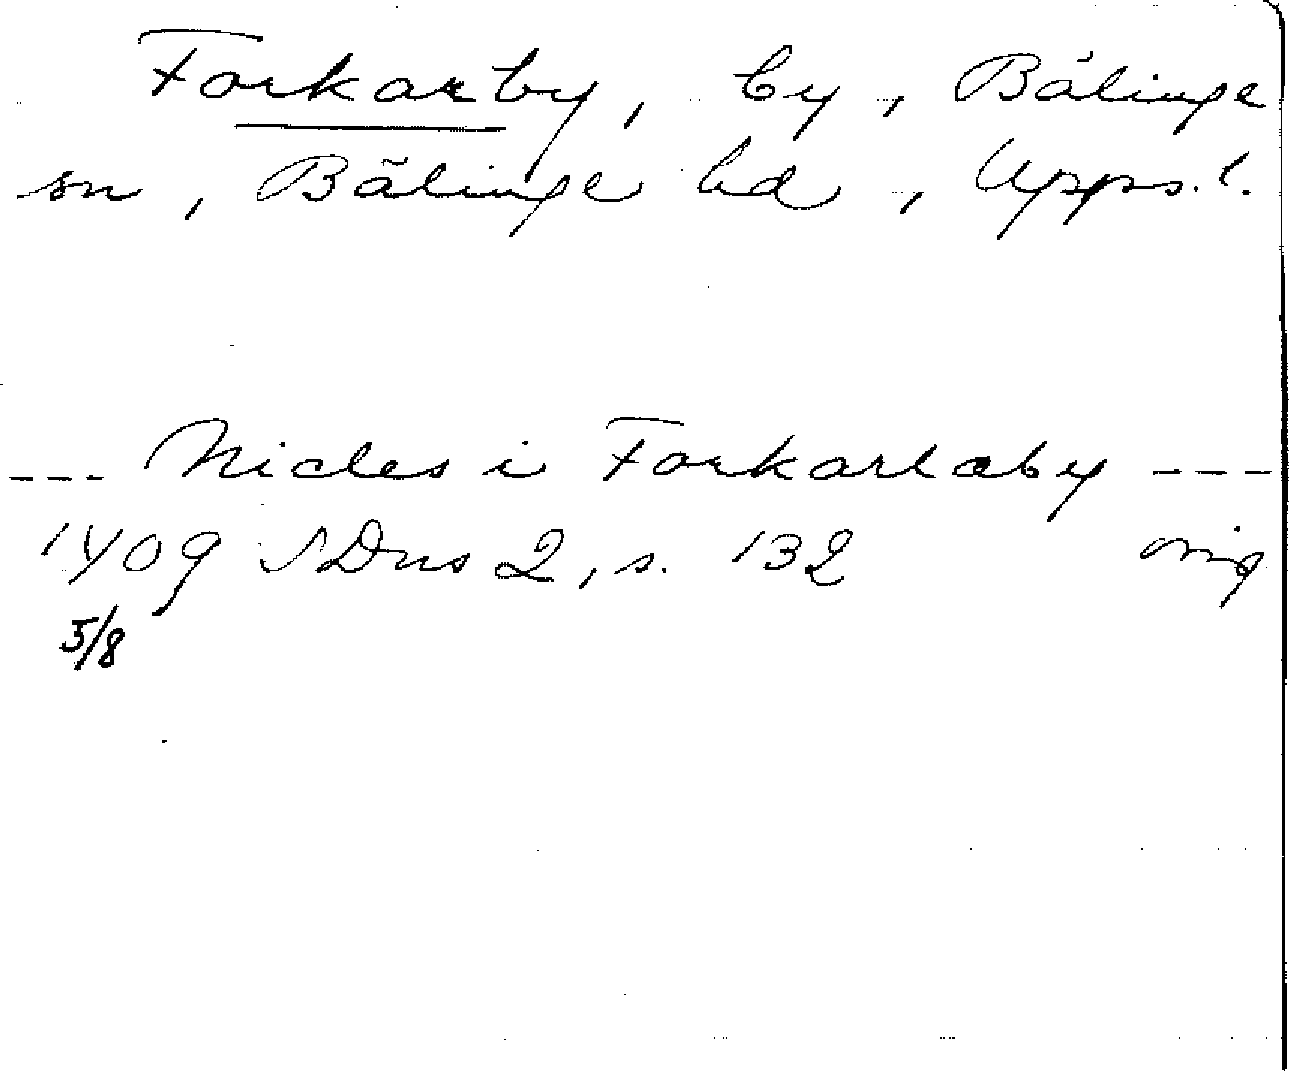 Forkarby, by, Bälinge
sn, Bälinge hd, Upps. l.
--- Nicles i Forkarlaby ---
1409 SDns 2, s. 132 orig
5/8